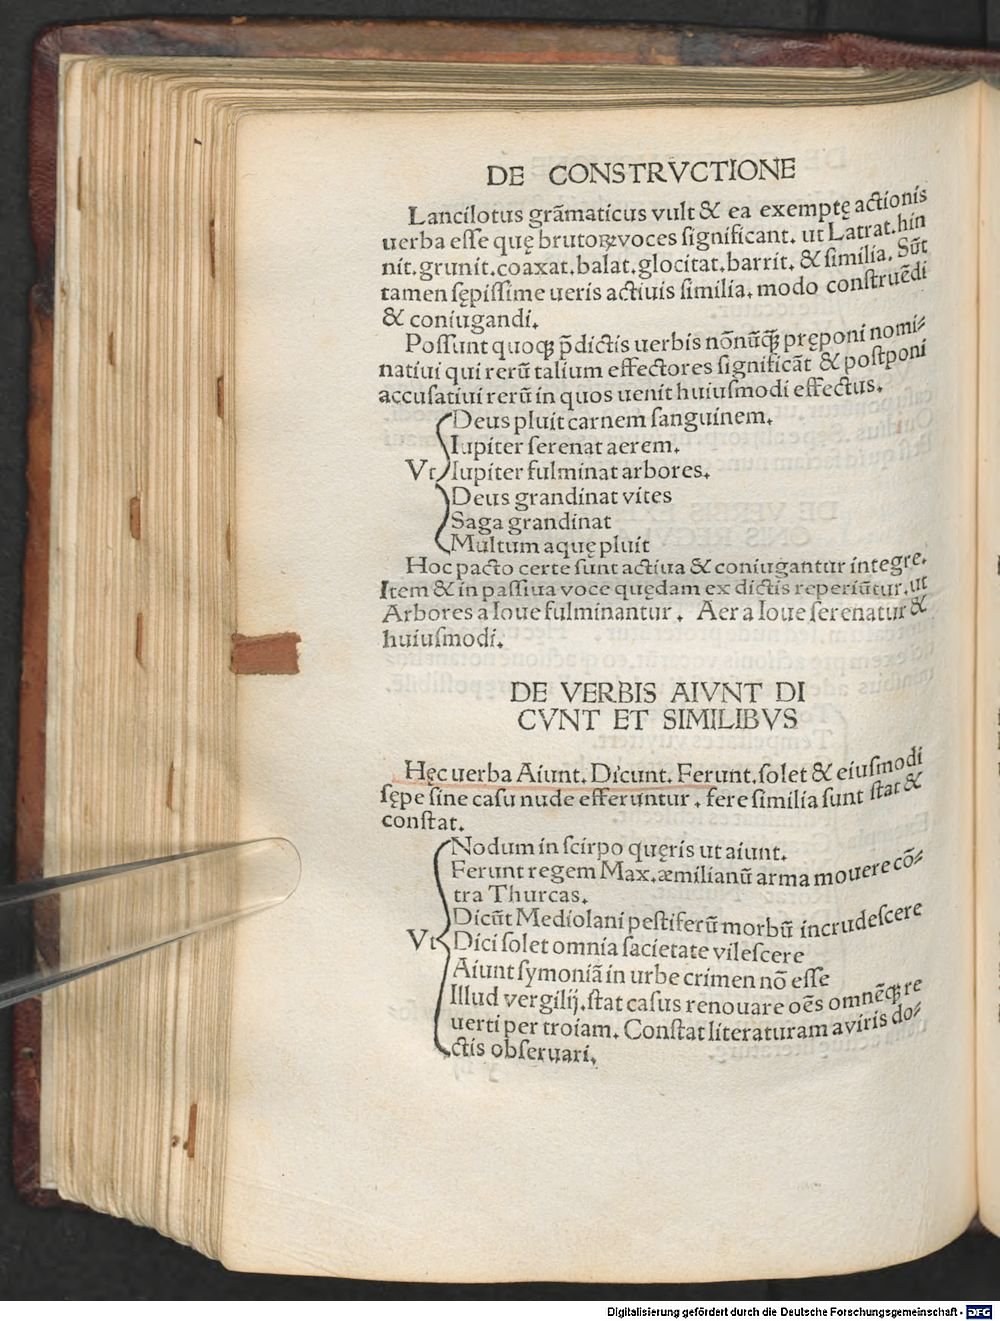 DE CONSTRVCTIONE
Lancilotus grāmaticus vult & ea exemptę actionis
uerba eſſe quę brutoꝝ voces ſignificant. ut Latrat. hin
nit. grunit. coaxat. balat. glocitat. barrit. & ſimilia. Sūt
tamen ſępiſſime ueris actiuis ſimilia. modo conſtruēdi
& coniugandi.
Poſſunt quoqꝫ p̄dictis uerbis nōnūqꝫ pręponi nomi⸗
natiui qui rerū talium effectores ſignificāt & poſtponi
accuſatiui rerū in quos uenit huiuſmodi effectus.
Deus pluit carnem ſanguinem.
Iupiter ſerenat aerem.
Vt Iupiter fulminat arbores.
Deus grandinat vites
Saga grandinat
Multum aquę pluit
Hoc pacto certe ſunt actiua & coniugantur integre.
Item & in paſſiua voce quędam ex dictis reperiūtur. ut
Arbores a Ioue fulminantur. Aer a Ioue ſerenatur &
huiuſmodi.
DE VERBIS AIVNT DI
CVNT ET SIMILIBVS
Hęc uerba Aiunt. Dicunt. Ferunt. ſolet & eiuſmodi
ſępe ſine caſu nude efferuntur. fere ſimilia ſunt ſtat &
conſtat.
Nodum in ſcirpo quęris ut aiunt.
Ferunt regem Max. æmilianū arma mouere cō⸗
tra Thurcas.
Dicūt Mediolani peſtiferū morbū incrudeſcere
Vt Dici ſolet omnia ſacietate vileſcere
Aiunt ſymoniā in urbe crimen nō eſſe
Illud vergilij. ſtat caſus renouare oēs omnēqꝫ re
uerti per troiam. Conſtat literaturam a viris do⸗
ctis obſeruari.
Digitalisierung gefördert durch die Deutsche Forschungsgemeinschaft - DFG